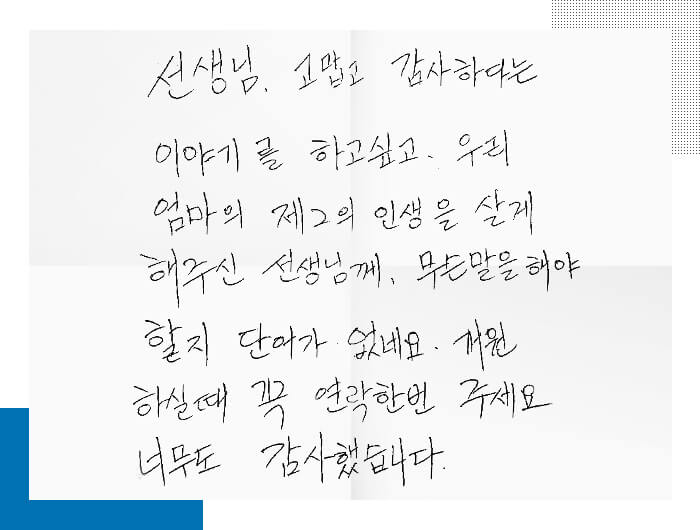 선생님. 고맙고 감사하다는
이야기를 하고싶고. 우리
엄마의 제2의 인생을 살게
해주신 선생님께, 무슨말을해야
할지 단어가 없네요. 개원
하실때 꼭 연락한번 주세요
너무도 감사했습니다.